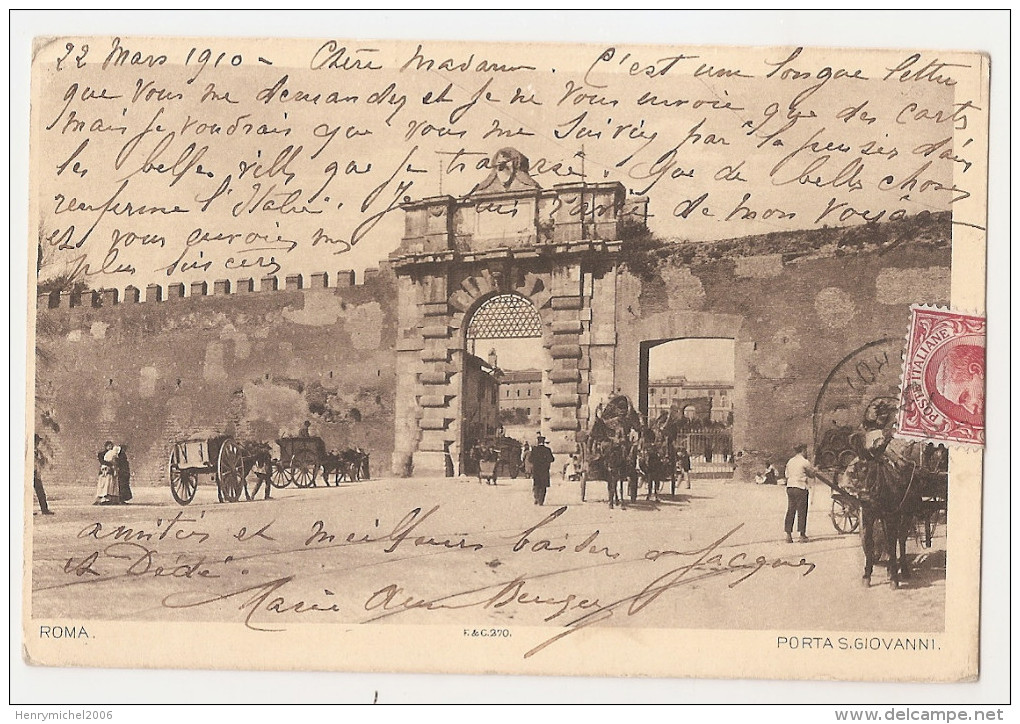 22 Mars 1910 - Chère Madame. C'est une longue lettre
que vous me demandez et je ne vous envoie que des cartes
mais je voudrais que vous me suiviez par la pensée dans
les belles villes que je traverse. Que de belles choses
renferme l'Italie. Je suis ravie de mon voyage
et vous envoie mes
plus sincères
amitiés et meilleurs baisers a Jacques
et Dédé.
Marie
POSTE ITALIANE
ROMA.
F. & C. 270.
PORTA S. GIOVANNI.
Henrymichel2006